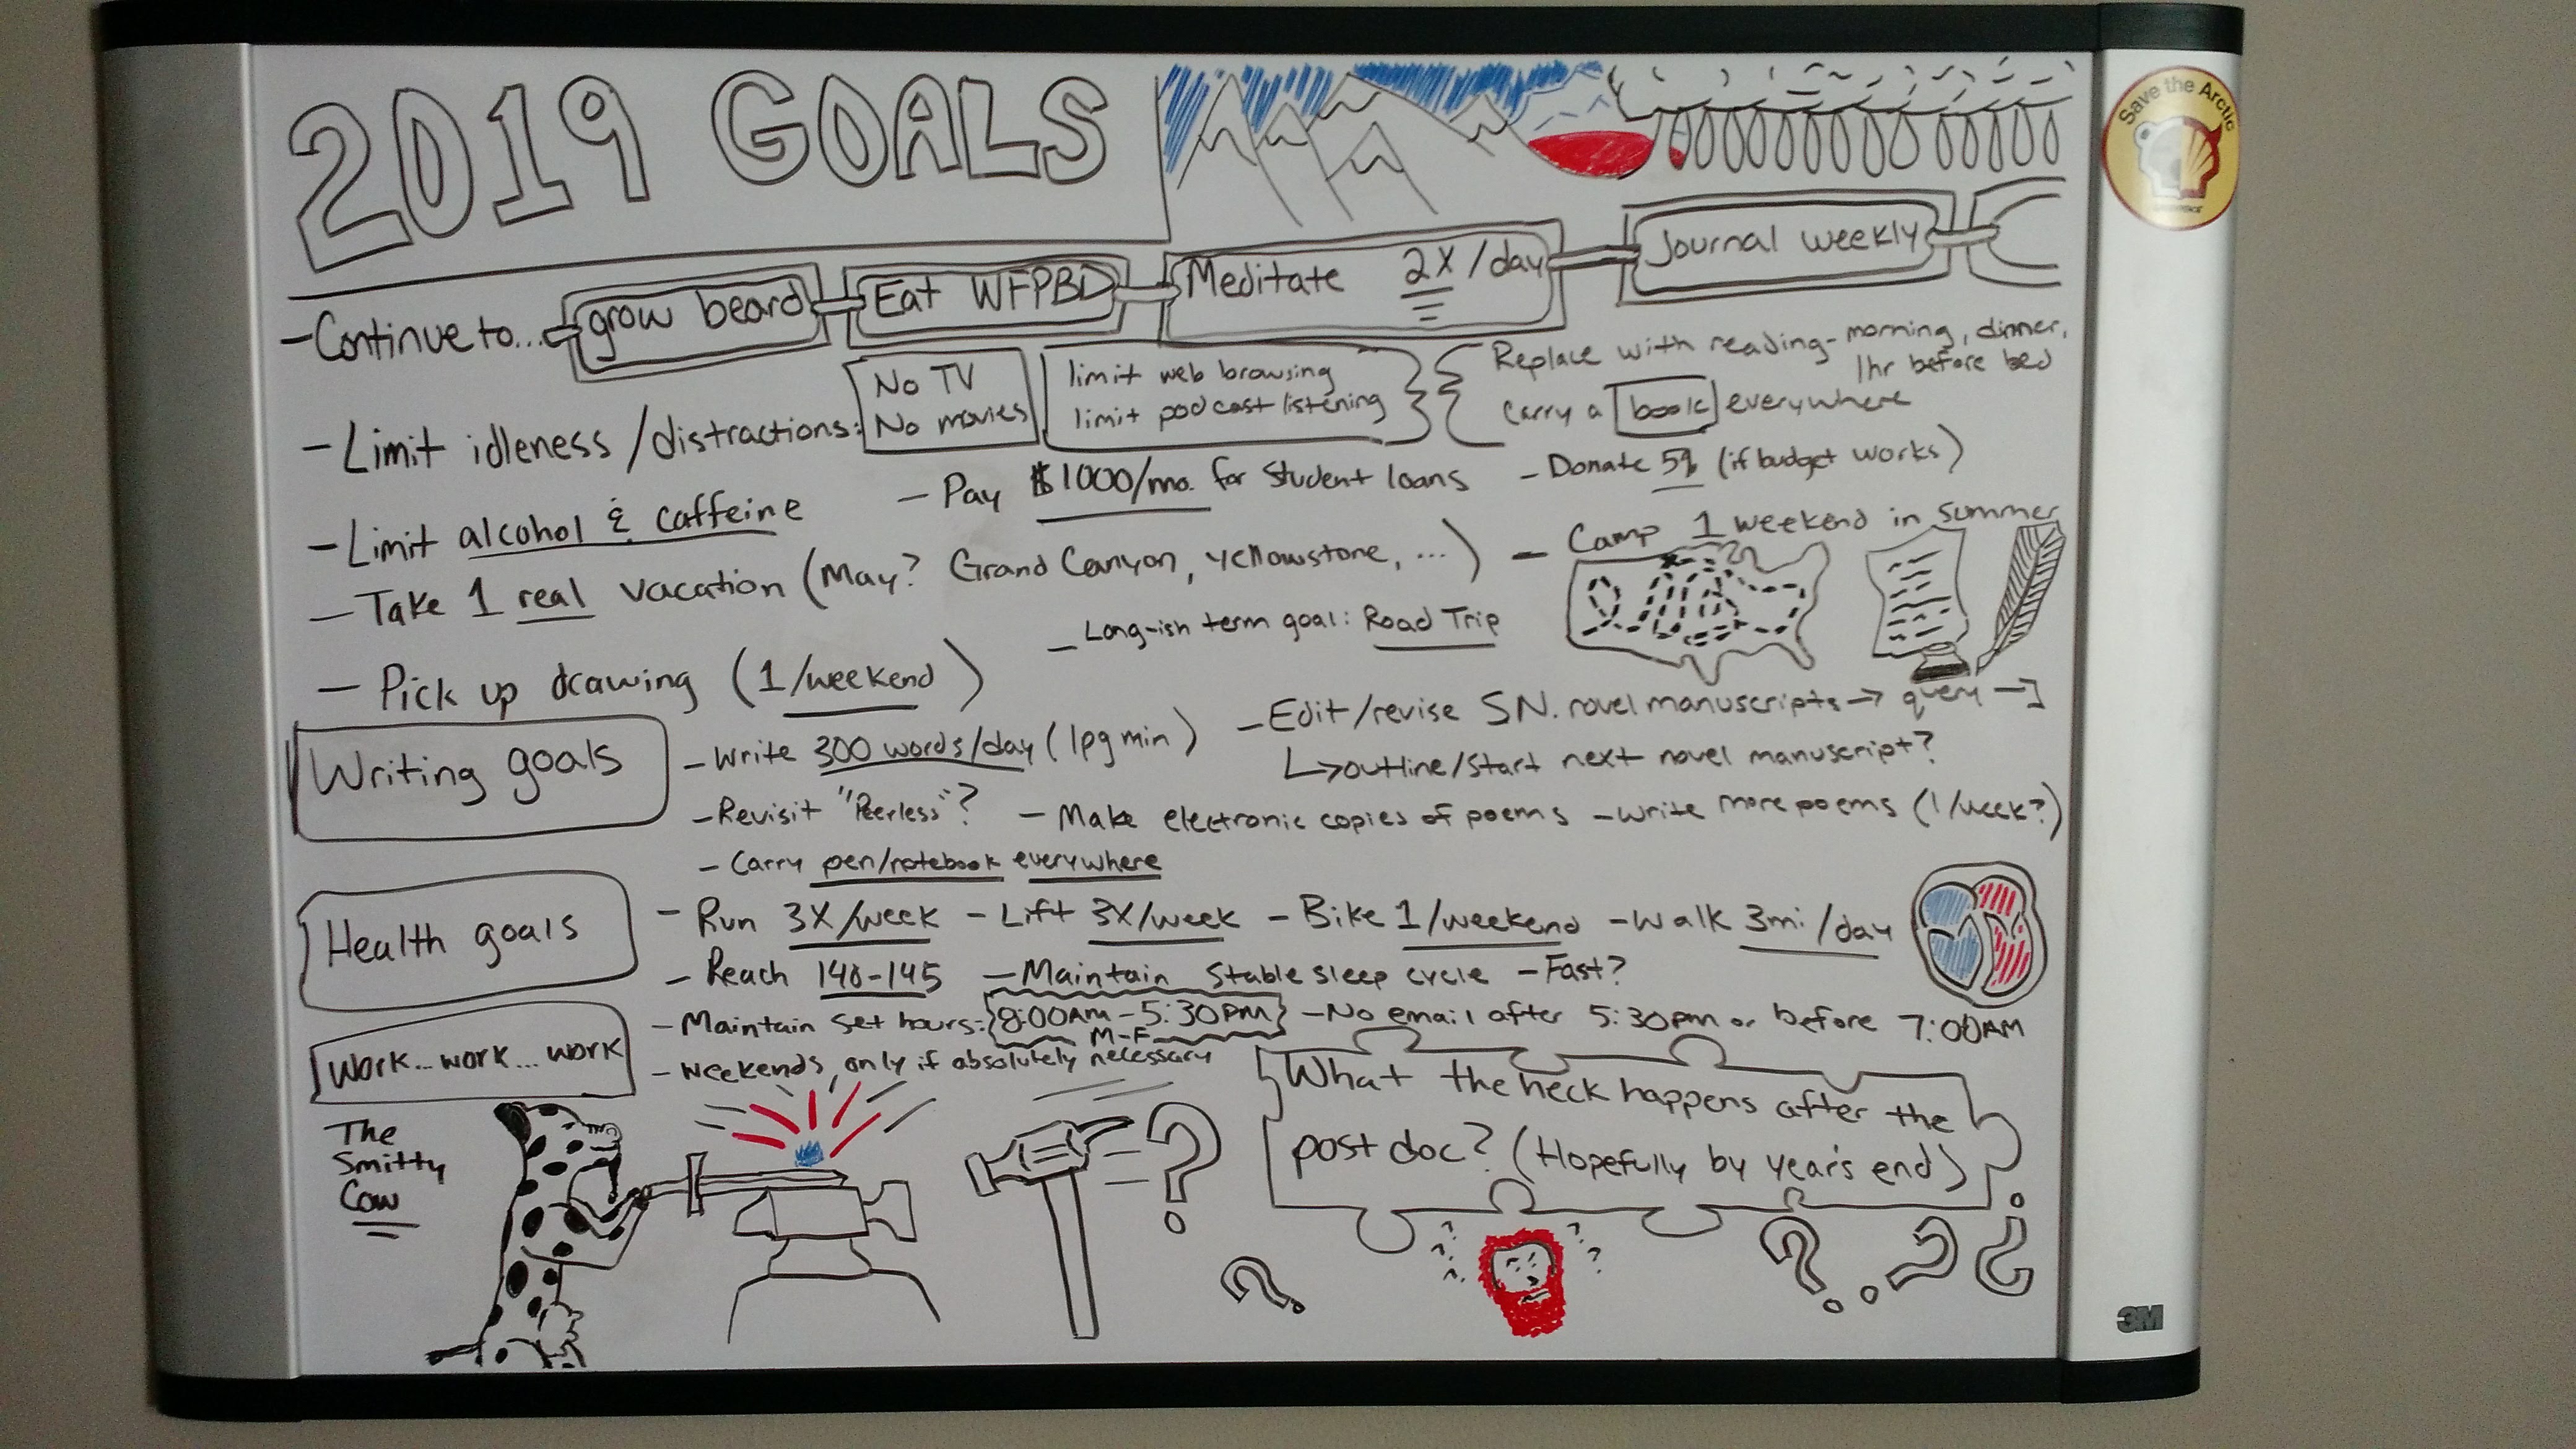 2019 GOALS
Save the Arctic
-Continue to... grow beard Eat WFPBD Meditate 2X/day Journal weekly
-Limit idleness/distractions: No TV
No movies
limit web browsing
limit podcast listening
Replace with reading-morning, dinner,
1hr before bed
carry a book everywhere
-Limit alcohol & caffeine
-Pay $1000/mo. for student loans
-Donate 5% (if budget works)
-Take 1 real vacation (May? Grand Canyon, yellowstone, ...)
-Camp 1 weekend in summer
-Long-ish term goal: Road Trip
-Pick up drawing (1/weekend)
Writing goals
-Write 300 words/day (1pg min)
-Edit/revise SN. novel manuscripts→ query
↳outline/start next novel manuscript?
-Revisit "Peerless"? -Make electronic copies of poems -write more poems (1/week?)
-Carry pen/notebook everywhere
Health goals
-Run 3X/week -Lift 3X/week -Bike 1/weekend -Walk 3mi/day
-Reach 140-145 -Maintain stable sleep cycle -Fast?
Work...work...work
-Maintain set hours: 8:00AM-5:30PM -No email after 5:30pm or before 7:00AM
M-F
-weekends, only if absolutely necessary
What the heck happens after the
post doc? (Hopefully by year's end)
The
Smitty
Cow
?
?
?
?
¿
3M